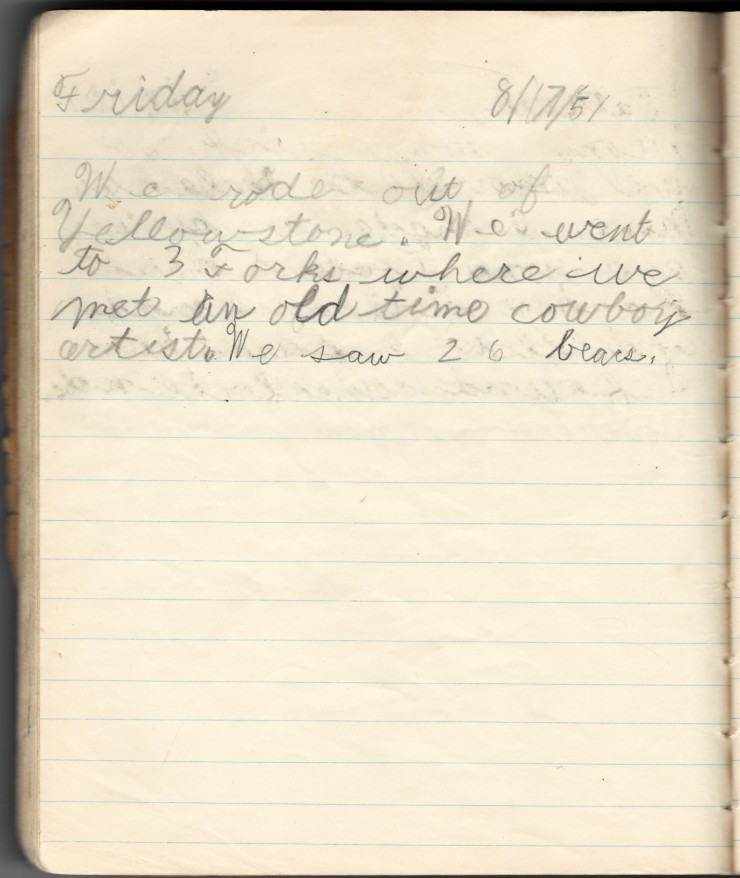 Friday 8/17/51
We rode out of
Yellowstone. We went
to 3 Forks where we
met an old time cowboy
artist. We saw 26 bears.